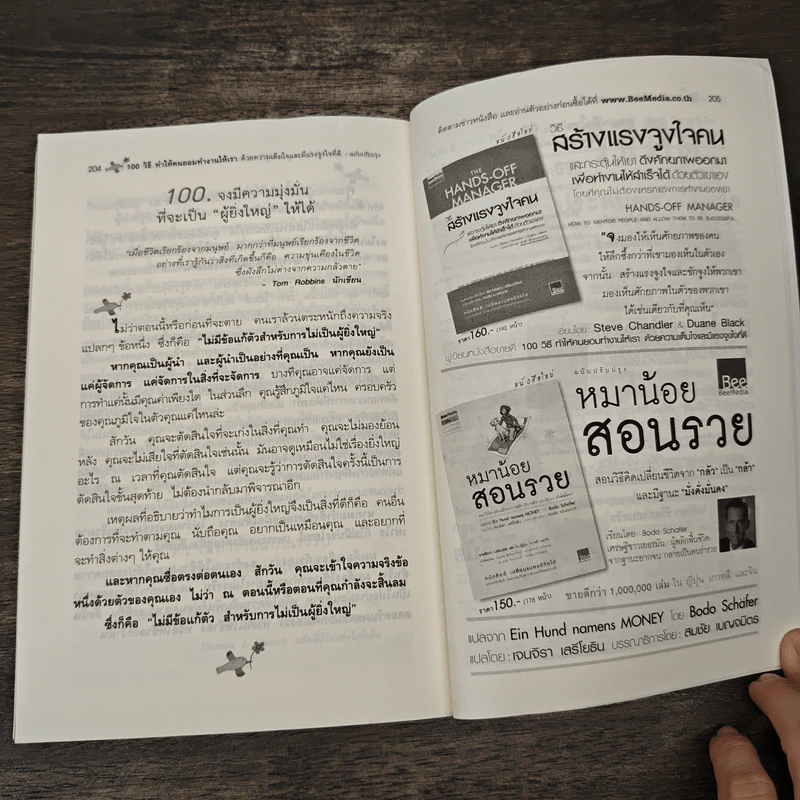 204 100 วิธี ทำให้คนยอมทำงานให้เรา ด้วยความเต็มใจและมีแรงจูงใจที่ดี - ฉบับปรับปรุง
100. จงมีความมุ่งมั่น
ที่จะเป็น “ผู้ยิ่งใหญ่” ให้ได้
“เมื่อชีวิตเรียกร้องจากมนุษย์ มากกว่าที่มนุษย์เรียกร้องจากชีวิต
อย่างที่เรารู้กันว่าสิ่งที่เกิดขึ้นก็คือ ความขุ่นเคืองในชีวิต
ซึ่งฝังลึกไม่ต่างจากความกลัวตาย”
- Tom Robbins นักเขียน
ไม่ว่าตอนนี้หรือก่อนที่จะตาย คนเราล้วนตระหนักถึงความจริง
แปลกๆ ข้อหนึ่ง ซึ่งก็คือ “ไม่มีข้อแก้ตัวสำหรับการไม่เป็นผู้ยิ่งใหญ่”
หากคุณเป็นผู้นำ และผู้นำเป็นอย่างที่คุณเป็น หากคุณยังเป็น
แค่ผู้จัดการ แค่จัดการในสิ่งที่จะจัดการ บางทีคุณอาจแค่จัดการ แต่
การทำแค่นั้นมีคุณค่าเพียงใด ในส่วนลึก คุณรู้สึกภูมิใจแค่ไหน ครอบครัว
ของคุณภูมิใจในตัวคุณแค่ไหนล่ะ
สักวัน คุณจะตัดสินใจที่จะเก่งในสิ่งที่คุณทำ คุณจะไม่มองย้อน
หลัง คุณจะไม่เสียใจที่ตัดสินใจเช่นนั้น มันอาจดูเหมือนไม่ใช่เรื่องยิ่งใหญ่
อะไร ณ เวลาที่คุณตัดสินใจ แต่คุณจะรู้ว่าการตัดสินใจครั้งนี้เป็นการ
ตัดสินใจขั้นสุดท้าย ไม่ต้องนำกลับมาพิจารณาอีก
เหตุผลที่อธิบายว่าทำไมการเป็นผู้ยิ่งใหญ่จึงเป็นสิ่งที่ดีก็คือ คนอื่น
ต้องการที่จะทำตามคุณ นับถือคุณ อยากเป็นเหมือนคุณ และอยากที่
จะทำสิ่งต่างๆ ให้คุณ
และหากคุณซื่อตรงต่อตนเอง สักวัน คุณจะเข้าใจความจริงข้อ
หนึ่งด้วยตัวของคุณเอง ไม่ว่า ณ ตอนนี้หรือตอนที่คุณกำลังจะสิ้นลม
ซึ่งก็คือ “ไม่มีข้อแก้ตัว สำหรับการไม่เป็นผู้ยิ่งใหญ่”
ติดตามข่าวหนังสือ และอ่านตัวอย่างก่อนซื้อได้ที่ www.BeeMedia.co.th 205
หนังสือใหม่
วิธี
สร้างแรงจูงใจคน
และกระตุ้นให้เขา ดึงศักยภาพออกมา
เพื่อทำงานให้สำเร็จได้ ด้วยตัวเขาเอง
โดยที่คุณไม่ต้องแทรกแซงการทำงานของเขา
HANDS-OFF MANAGER
HOW TO MENTOR PEOPLE AND ALLOW THEM TO BE SUCCESSFUL
“จงมองให้เห็นศักยภาพของคน
ให้ลึกซึ้งกว่าที่เขามองเห็นในตัวเอง
จากนั้น สร้างแรงจูงใจและชักจูงให้พวกเขา
มองเห็นศักยภาพในตัวของพวกเขา
ได้เช่นเดียวกับที่คุณเห็น”
THE
HANDS-OFF
MANAGER
วิธี
สร้างแรงจูงใจคน
และกระตุ้นให้เขา ดึงศักยภาพออกมา
เพื่อทำงานให้สำเร็จได้ ด้วยตัวเขาเอง
ราคา 160.- (192 หน้า)
เขียนโดย: Steve Chandler & Duane Black
ผู้เขียนหนังสือขายดี 100 วิธี ทำให้คนยอมทำงานให้เรา ด้วยความเต็มใจและมีแรงจูงใจที่ดี
หนังสือใหม่
ฉบับปรับปรุง
หมาน้อย
สอนรวย
Bee
BeeMedia
สอนวิธีคิดเปลี่ยนชีวิตจาก “กลัว” เป็น “กล้า”
และมีฐานะ “มั่งคั่งมั่นคง”
หมาน้อย
สอนรวย
Ein Hund namens MONEY โดย Bodo Schäfer
เขียนโดย : Bodo Schäfer
เศรษฐีชาวเยอรมัน ผู้พลิกฟื้นชีวิต
จากฐานะยากจน กลายเป็นคนร่ำรวย
ราคา 150.- (176 หน้า)
ขายดีกว่า 1,000,000 เล่ม ใน ญี่ปุ่น เกาหลี และจีน
แปลจาก Ein Hund namens MONEY โดย Bodo Schäfer
แปลโดย : เจนจิรา เสรีโยธิน บรรณาธิการโดย : สมชัย เบญจมิตร